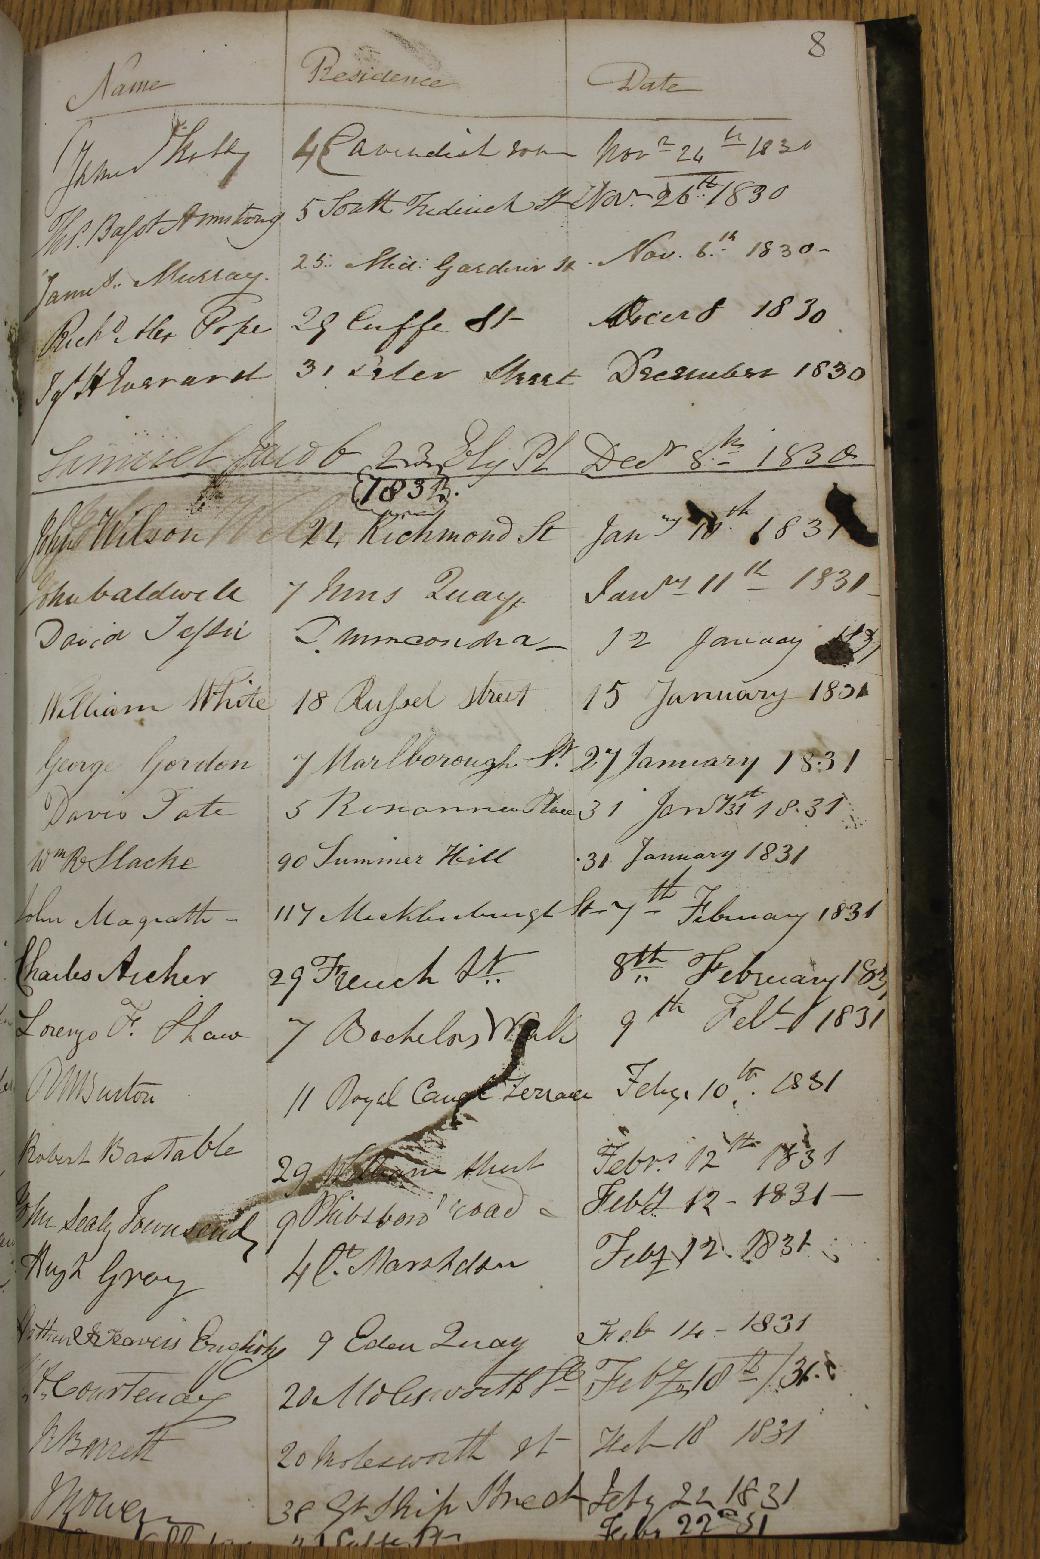 8
Name Residence Date
James 4 Cavendish row Novr 24th 1830
Thos. Bagot Armstrong 5 South Frederick St Nov. 26th 1830
James Murray. 25 Mid: Gardiner St. Nov. 6th 1830-
Richd Pope 29 Cuffe St 1830
Everard 31 Street December 1830
Samuel Jacob 23 Ely Pl Decr 8th 1830
1831.
John Wilson 24 Richmond St Jany 10th 1831
John Caldwell 7 Inns Quay Jany 11th 1831-
David Drumcondra- 12 January 1831
William White 18 Russel street 15 January 1831
George Gordon 7 Marlborough St. 27 January 1831
David Tate 5 Place 31 Jany 31st 1831
Wm R Slacke 90 Summer Hill 31 January 1831
John Magrath- 117 Mecklenburgh St- 7th February 1831
Charles Archer 29 French St. 8th February 1831
Lorenzo F. Shaw 7 Bachelors Walk 9th Feby 1831
Burton 11 Royal Canal Terrace Feby. 10th. 1831
Robert Bastable 29 William Street Feby 12th 1831
John Sealy Townsend 9 Phibsboro' road Feby 12- 1831-
Hugh Gray 4 Ct. Marshalsea Feby 12. 1831
9 Eden Quay Feb 14- 1831
Courtenay 20 Molesworth St Feby 18th /31.
Barrett 20 Molesworth St Feb 18 1831
Owen 38 Gt Ship Street Feby 22 1831
Feby 22nd 31